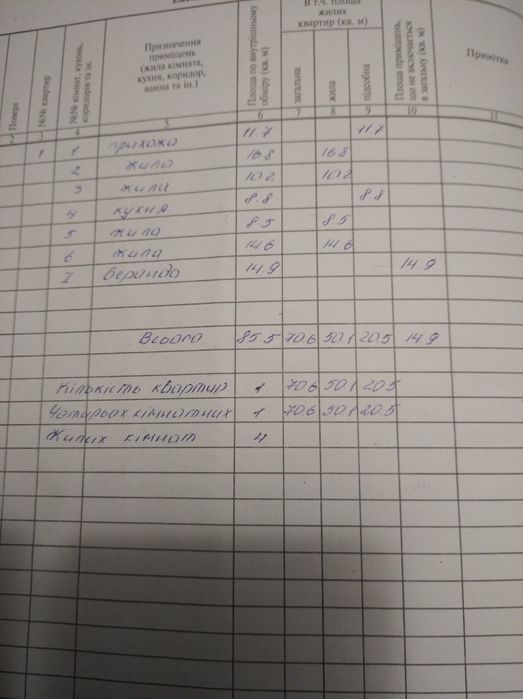 В т.ч. площа
жилих
квартир (кв. м)
Поверх
№№ квартир
№№ кімнат, кухонь,
коридорів та ін.
Призначення
приміщень
(жила кімната,
кухня, коридор,
ванна та ін.)
Площа по внутрішньому
обміру (кв. м)
загальна
жила
підсобна
Площа приміщень,
що не включається
в загальну (кв. м)
Примітка
2 3 4 5 6 7 8 9 10 11
1 1 прихожа 11.7 11.7
2 жила 16.8 16.8
3 жила 10.2 10.2
4 кухня 8.8 8.8
5 жила 8.5 8.5
6 жила 14.6 14.6
I веранда 14.9 14.9
Всього 85.5 70.6 50.1 20.5 14.9
Кількість квартир 1 70.6 50.1 20.5
Чотирьох кімнатних 1 70.6 50.1 20.5
Жилих кімнат 4